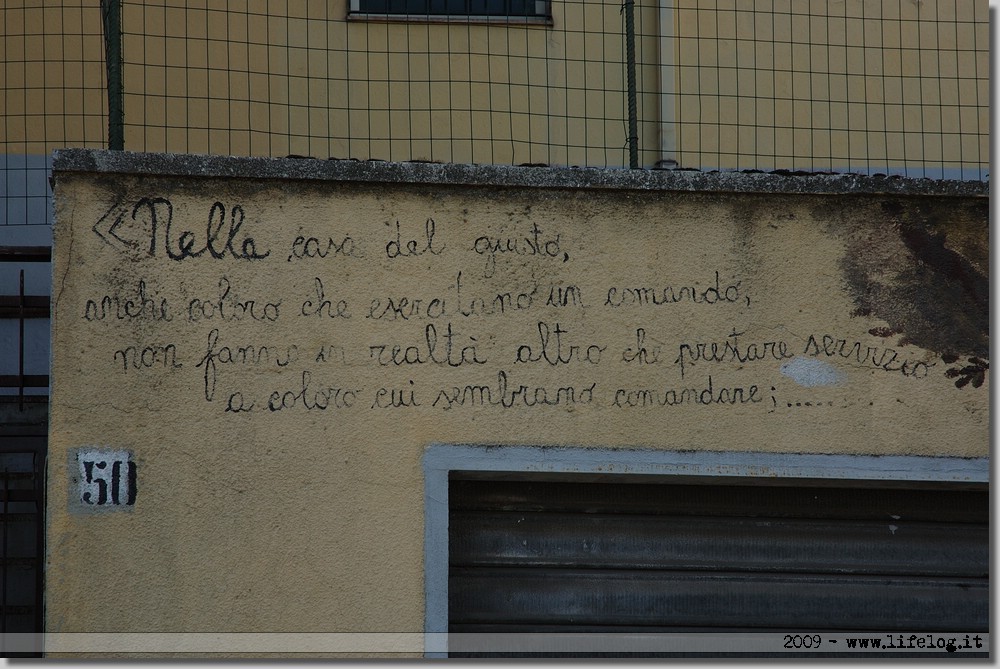 «Nella casa del giusto,
anche coloro che esercitano un comando,
non fanno in realtà altro che prestare servizio
a coloro cui sembrano comandare;........
50
2009 - www.lifelog.it